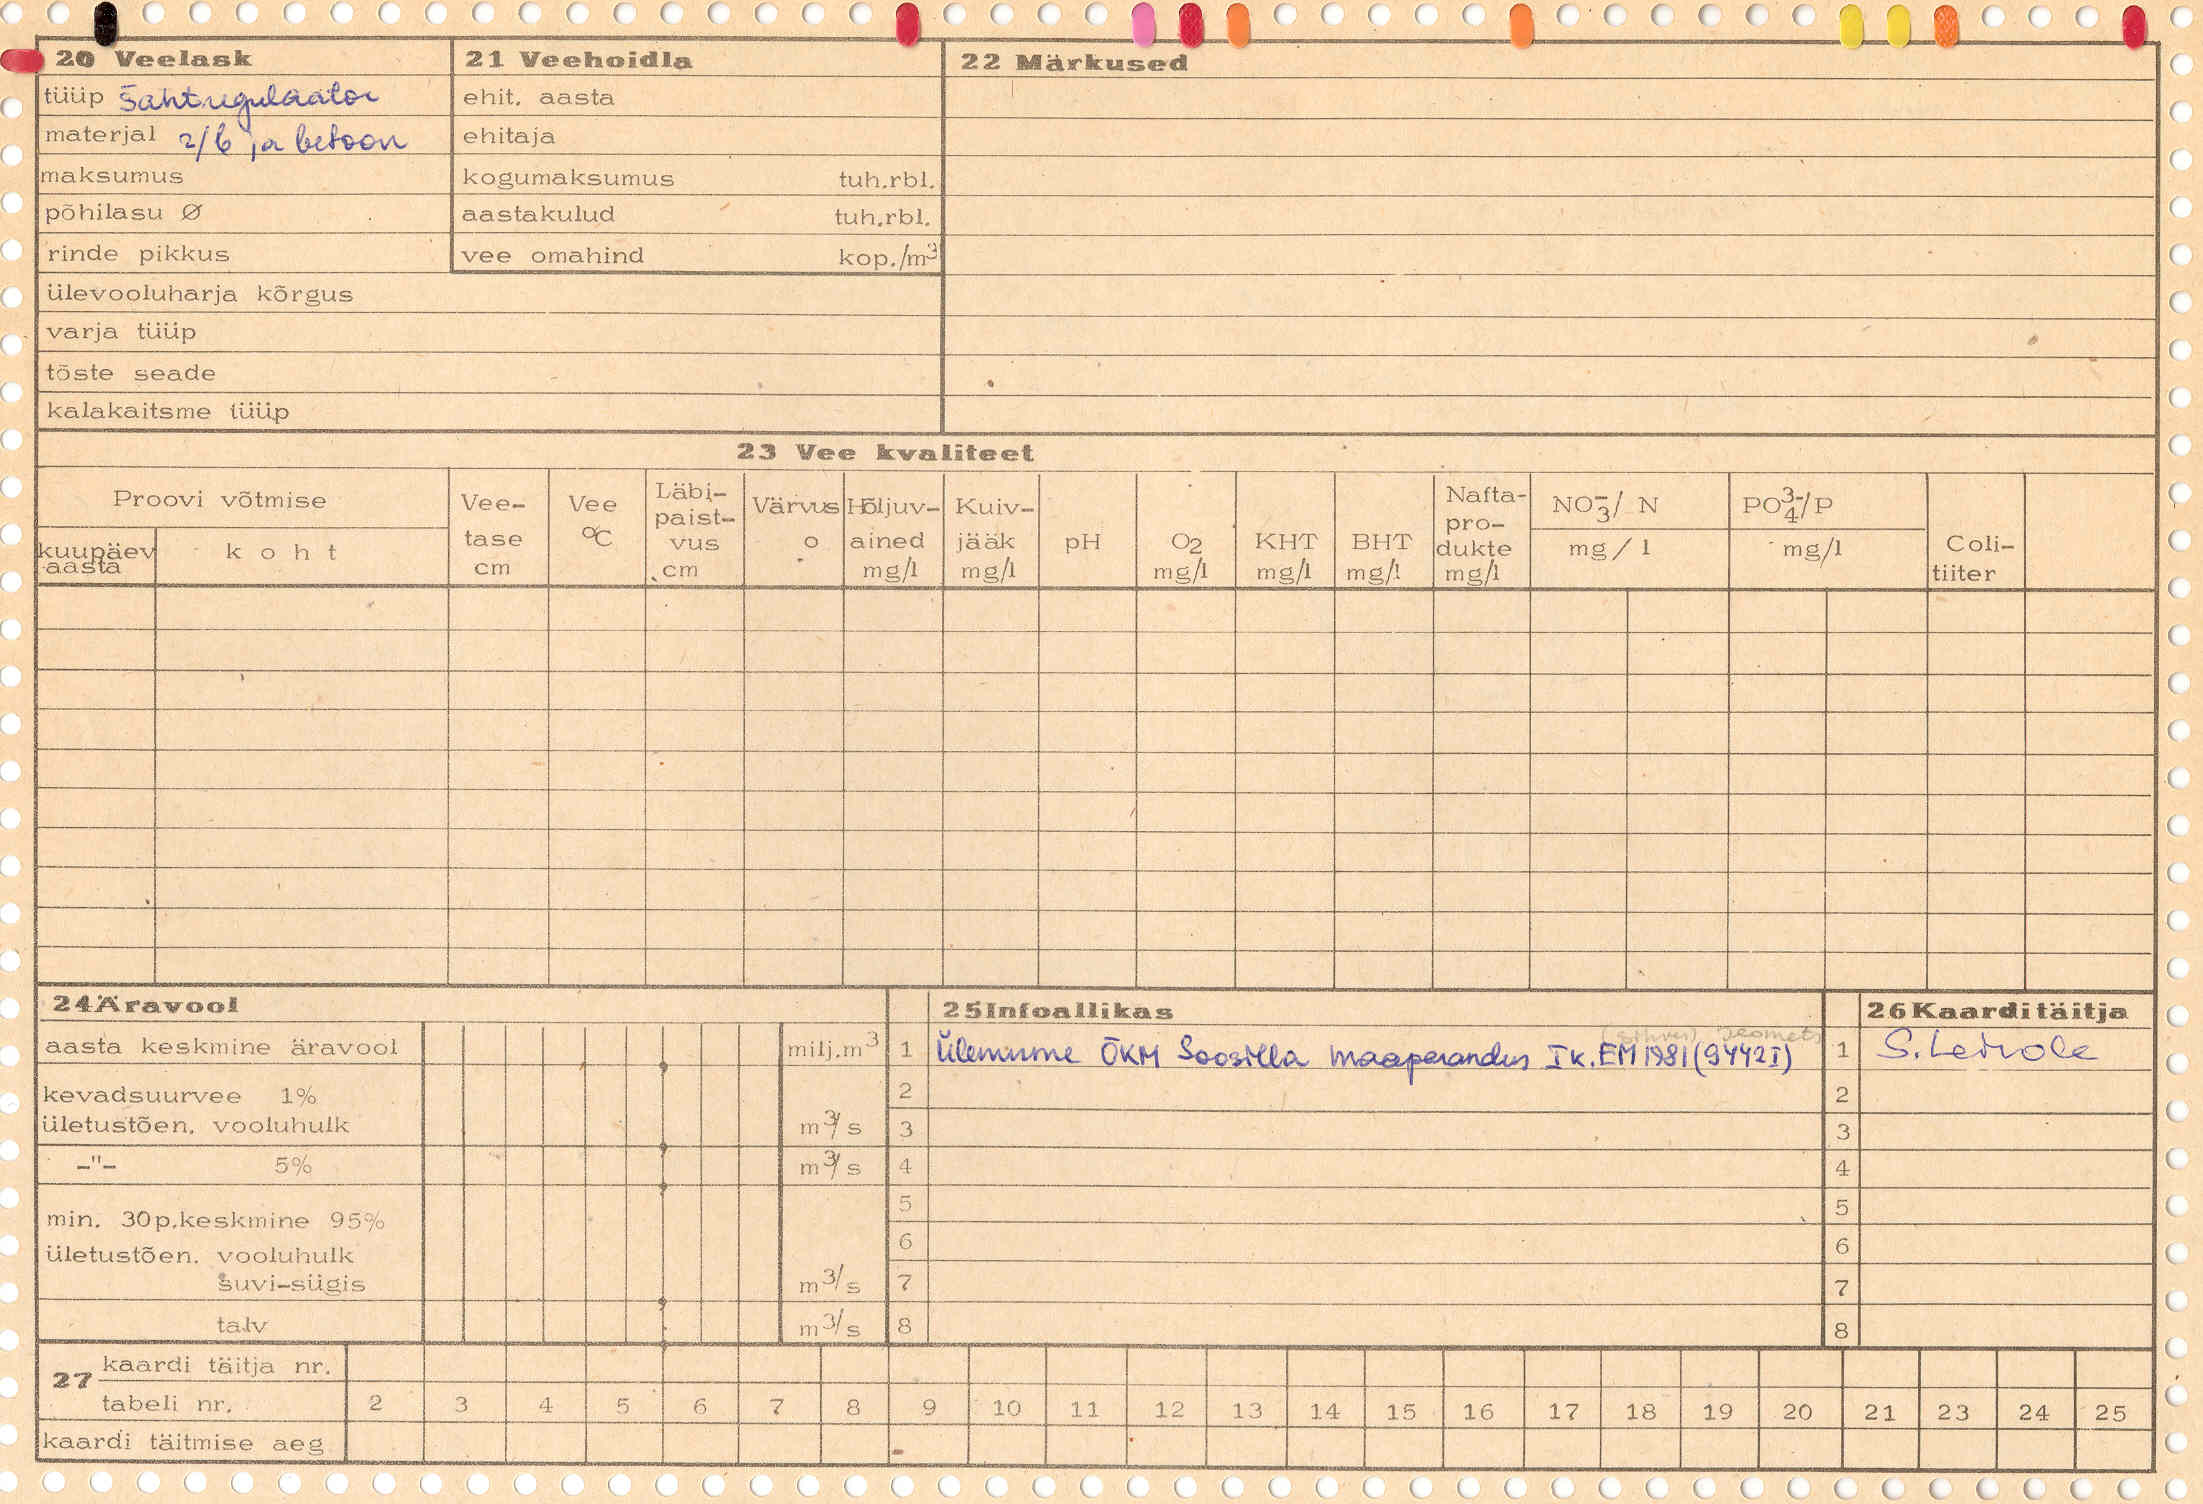 20 Veelask
tüüp Šahtregulaator
materjal r/b ja betoon
maksumus
põhilasu Ø
rinde pikkus
ülevooluharja kõrgus
varja tüüp
tõste seade
kalakaitsme tüüp
21 Veehoidla
ehit. aasta
ehitaja
kogumaksumus tuh.rbl.
aastakulud tuh.rbl.
vee omahind kop./m³
22 Märkused
23 Vee kvaliteet
Proovi võtmise
kuupäev aasta
koht
Vee-
tase
cm
Vee
°C
Läbi-
paist-
vus
cm
Värvus
o
Hõljuv-
ained
mg/l
Kuiv-
jääk
mg/l
pH
O2
mg/l
KHT
mg/l
BHT
mg/l
Nafta-
pro-
dukte
mg/l
NO3⁻/ N
mg/l
PO4³⁻/P
mg/l
Coli-
tiiter
24 Äravool
aasta keskmine äravool milj.m³
kevadsuurvee 1%
ületustõen. vooluhulk m³/s
-"- 5% m³/s
min. 30p.keskmine 95%
ületustõen. vooluhulk
suvi-sügis m³/s
talv m³/s
25 Infoallikas
1 Ülemnurme ÕKM Soosilla maaparandus I k. EM 1981 (9442I)
2
3
4
5
6
7
8
26 Kaarditäitja
1
2
3
4
5
6
7
8
27 kaardi täitja nr.
tabeli nr. 2 3 4 5 6 7 8 9 10 11 12 13 14 15 16 17 18 19 20 21 23 24 25
kaardi täitmise aeg